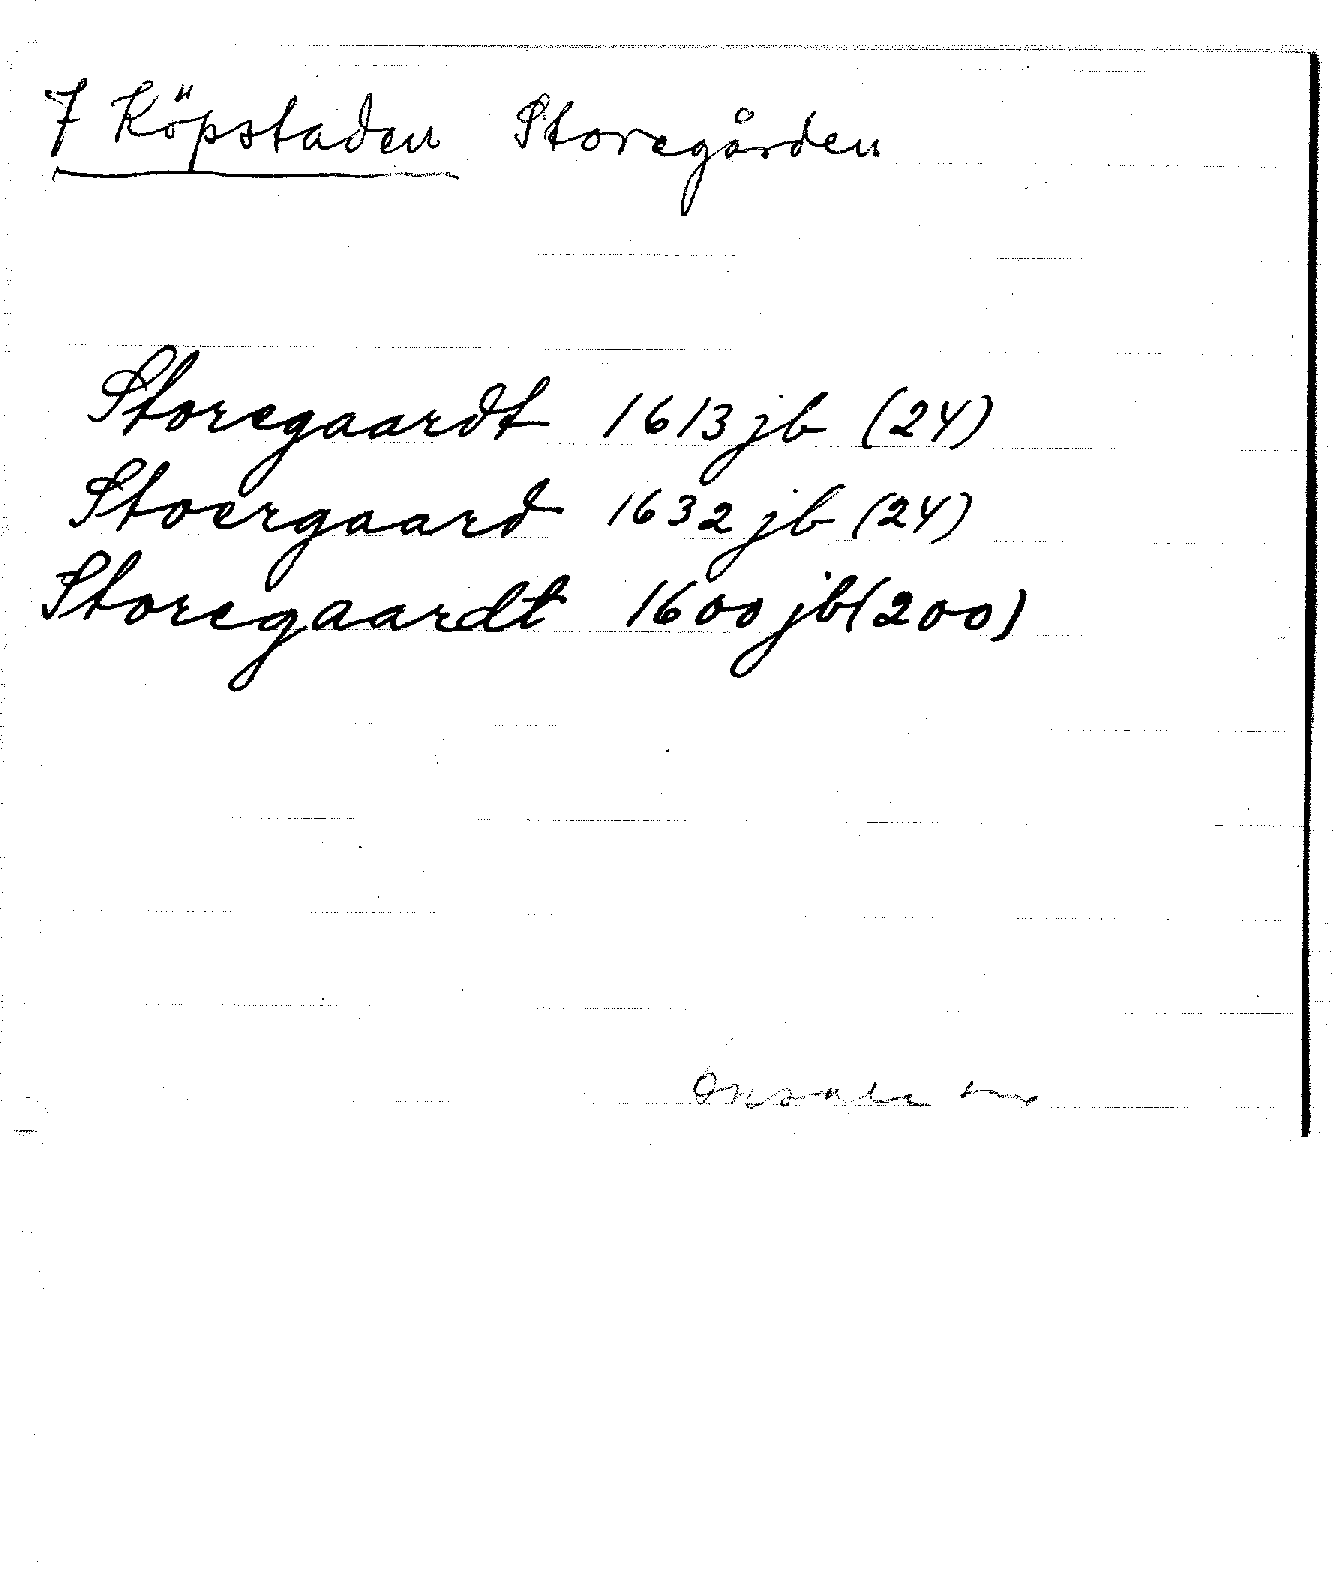 7 Köpstaden Storegården
Storegaardt 1613 jb (24)
Stoergaard 1632 jb (24)
Storegaardt 1600 jb (200)
Onsala